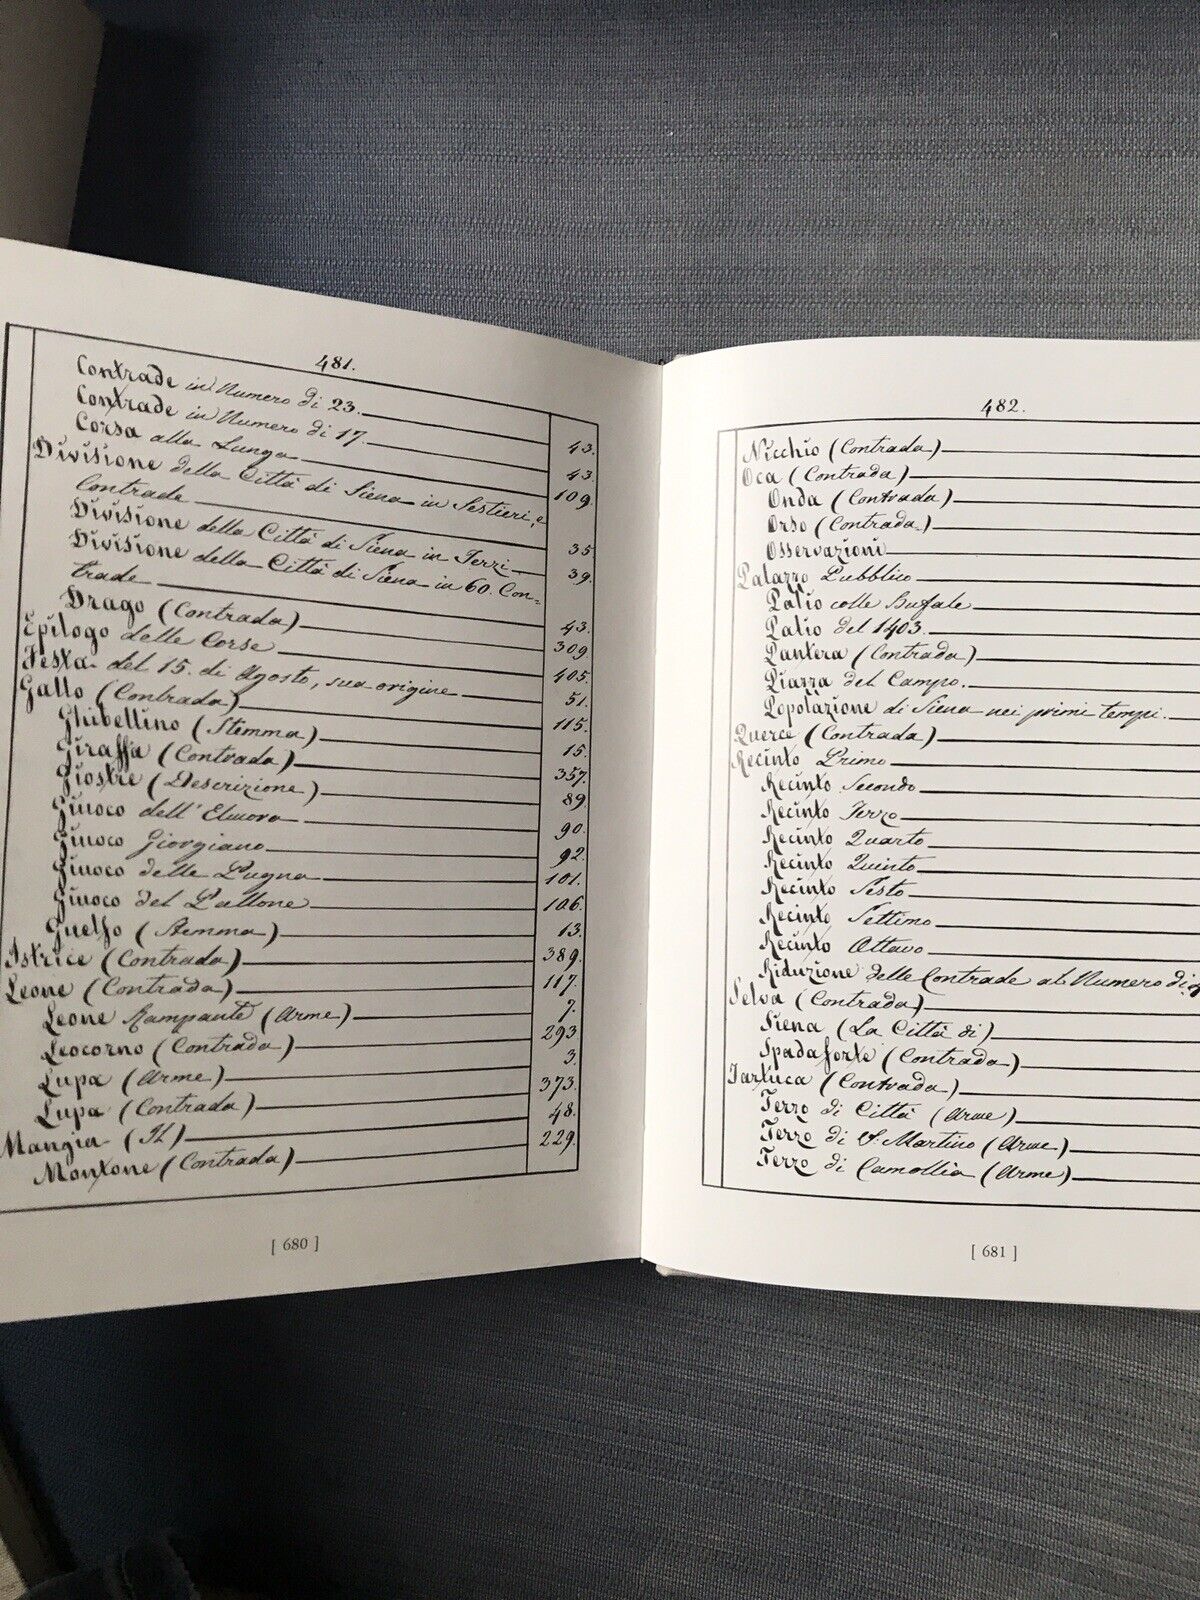 481.
Contrade in Numero di 23. 43.
Contrade in Numero di 17. 43.
Corsa alla Lunga 109.
Divisione della Città di Siena in Sestieri, e
Contrade 35
Divisione della Città di Siena in Terzi 39.
Divisione della Città di Siena in 60. Con-
trade 43.
Drago (Contrada) 309
Epilogo delle Corse 405.
Festa del 15. di Agosto, sua origine 51.
Gallo (Contrada) 115.
Ghibellino (Stemma) 15.
Giraffa (Contrada) 357.
Giostre (Descrizione) 89
Giuoco dell'Elmora 90.
Giuoco Giorgiano 92.
Giuoco delle Pugna 101.
Giuoco del Pallone 106.
Guelfo (Stemma) 13.
Istrice (Contrada) 389.
Leone (Contrada) 117.
Leone Rampante (Arme) 7.
Leocorno (Contrada) 293
Lupa (Arme) 3.
Lupa (Contrada) 373.
Mangia (Il) 48.
Montone (Contrada) 229.
[ 680 ]
482.
Nicchio (Contrada)
Oca (Contrada)
Onda (Contrada)
Orso (Contrada)
Osservazioni
Palazzo Pubblico
Palio colle Bufale
Palio del 1403.
Pantera (Contrada)
Piazza del Campo.
Popolazione di Siena nei primi tempi.
Querce (Contrada)
Recinto Primo
Recinto Secondo
Recinto Terzo
Recinto Quarto
Recinto Quinto
Recinto Sesto
Recinto Settimo
Recinto Ottavo
Riduzione delle Contrade al Numero di
Selva (Contrada)
Siena (La Città di)
Spadaforte (Contrada)
Tartuca (Contrada)
Terzo di Città (Arme)
Terzo di S. Martino (Arme)
Terzo di Camollia (Arme)
[ 681 ]